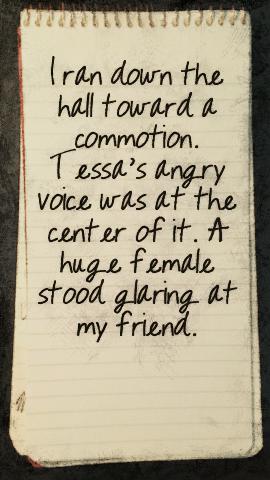 I ran down the
hall toward a
commotion.
Tessa's angry
voice was at the
center of it. A
huge female
stood glaring at
my friend.